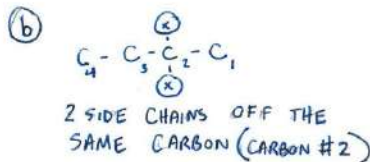 b
x
C4 - C3 - C2 - C1
x
2 SIDE CHAINS OFF THE
SAME CARBON (CARBON #2)